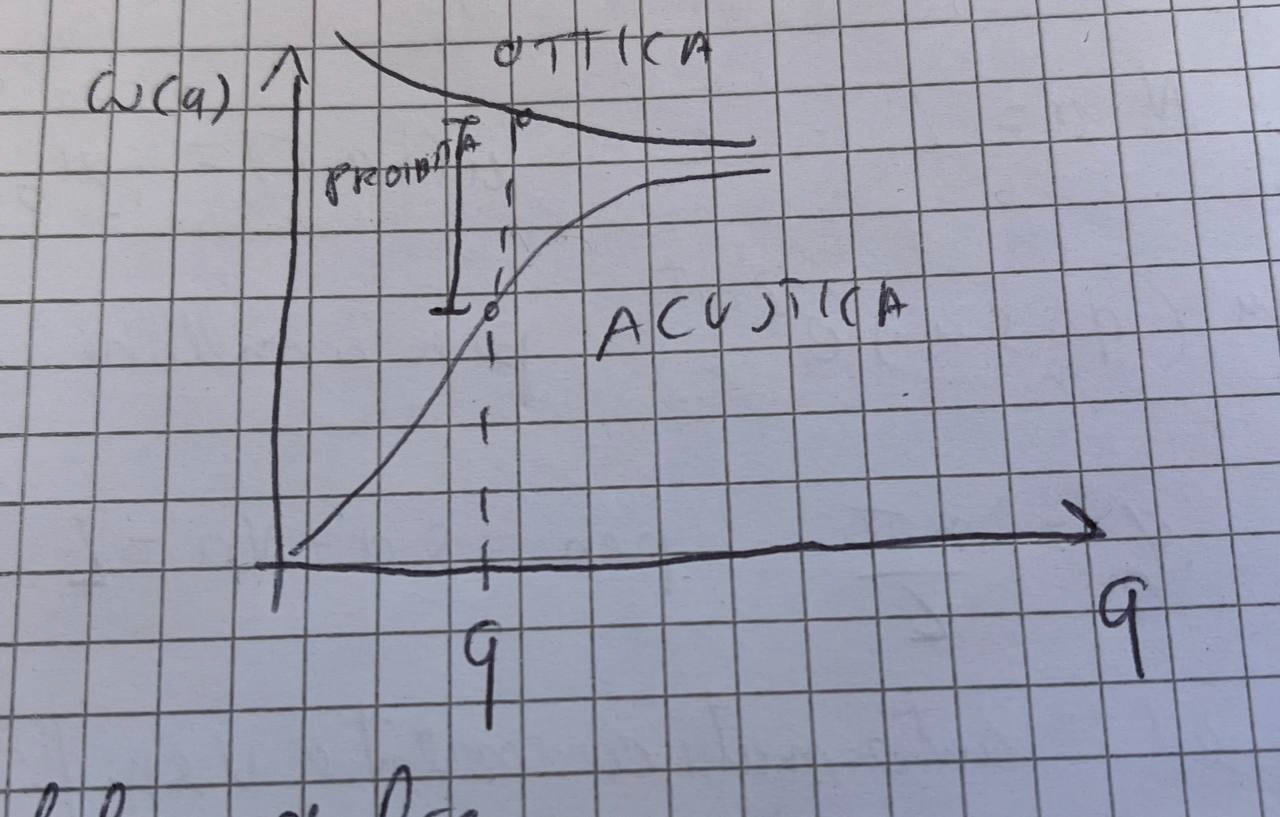 OTTICA
ω(q)
PROIBITA
ACUSTICA
q
q